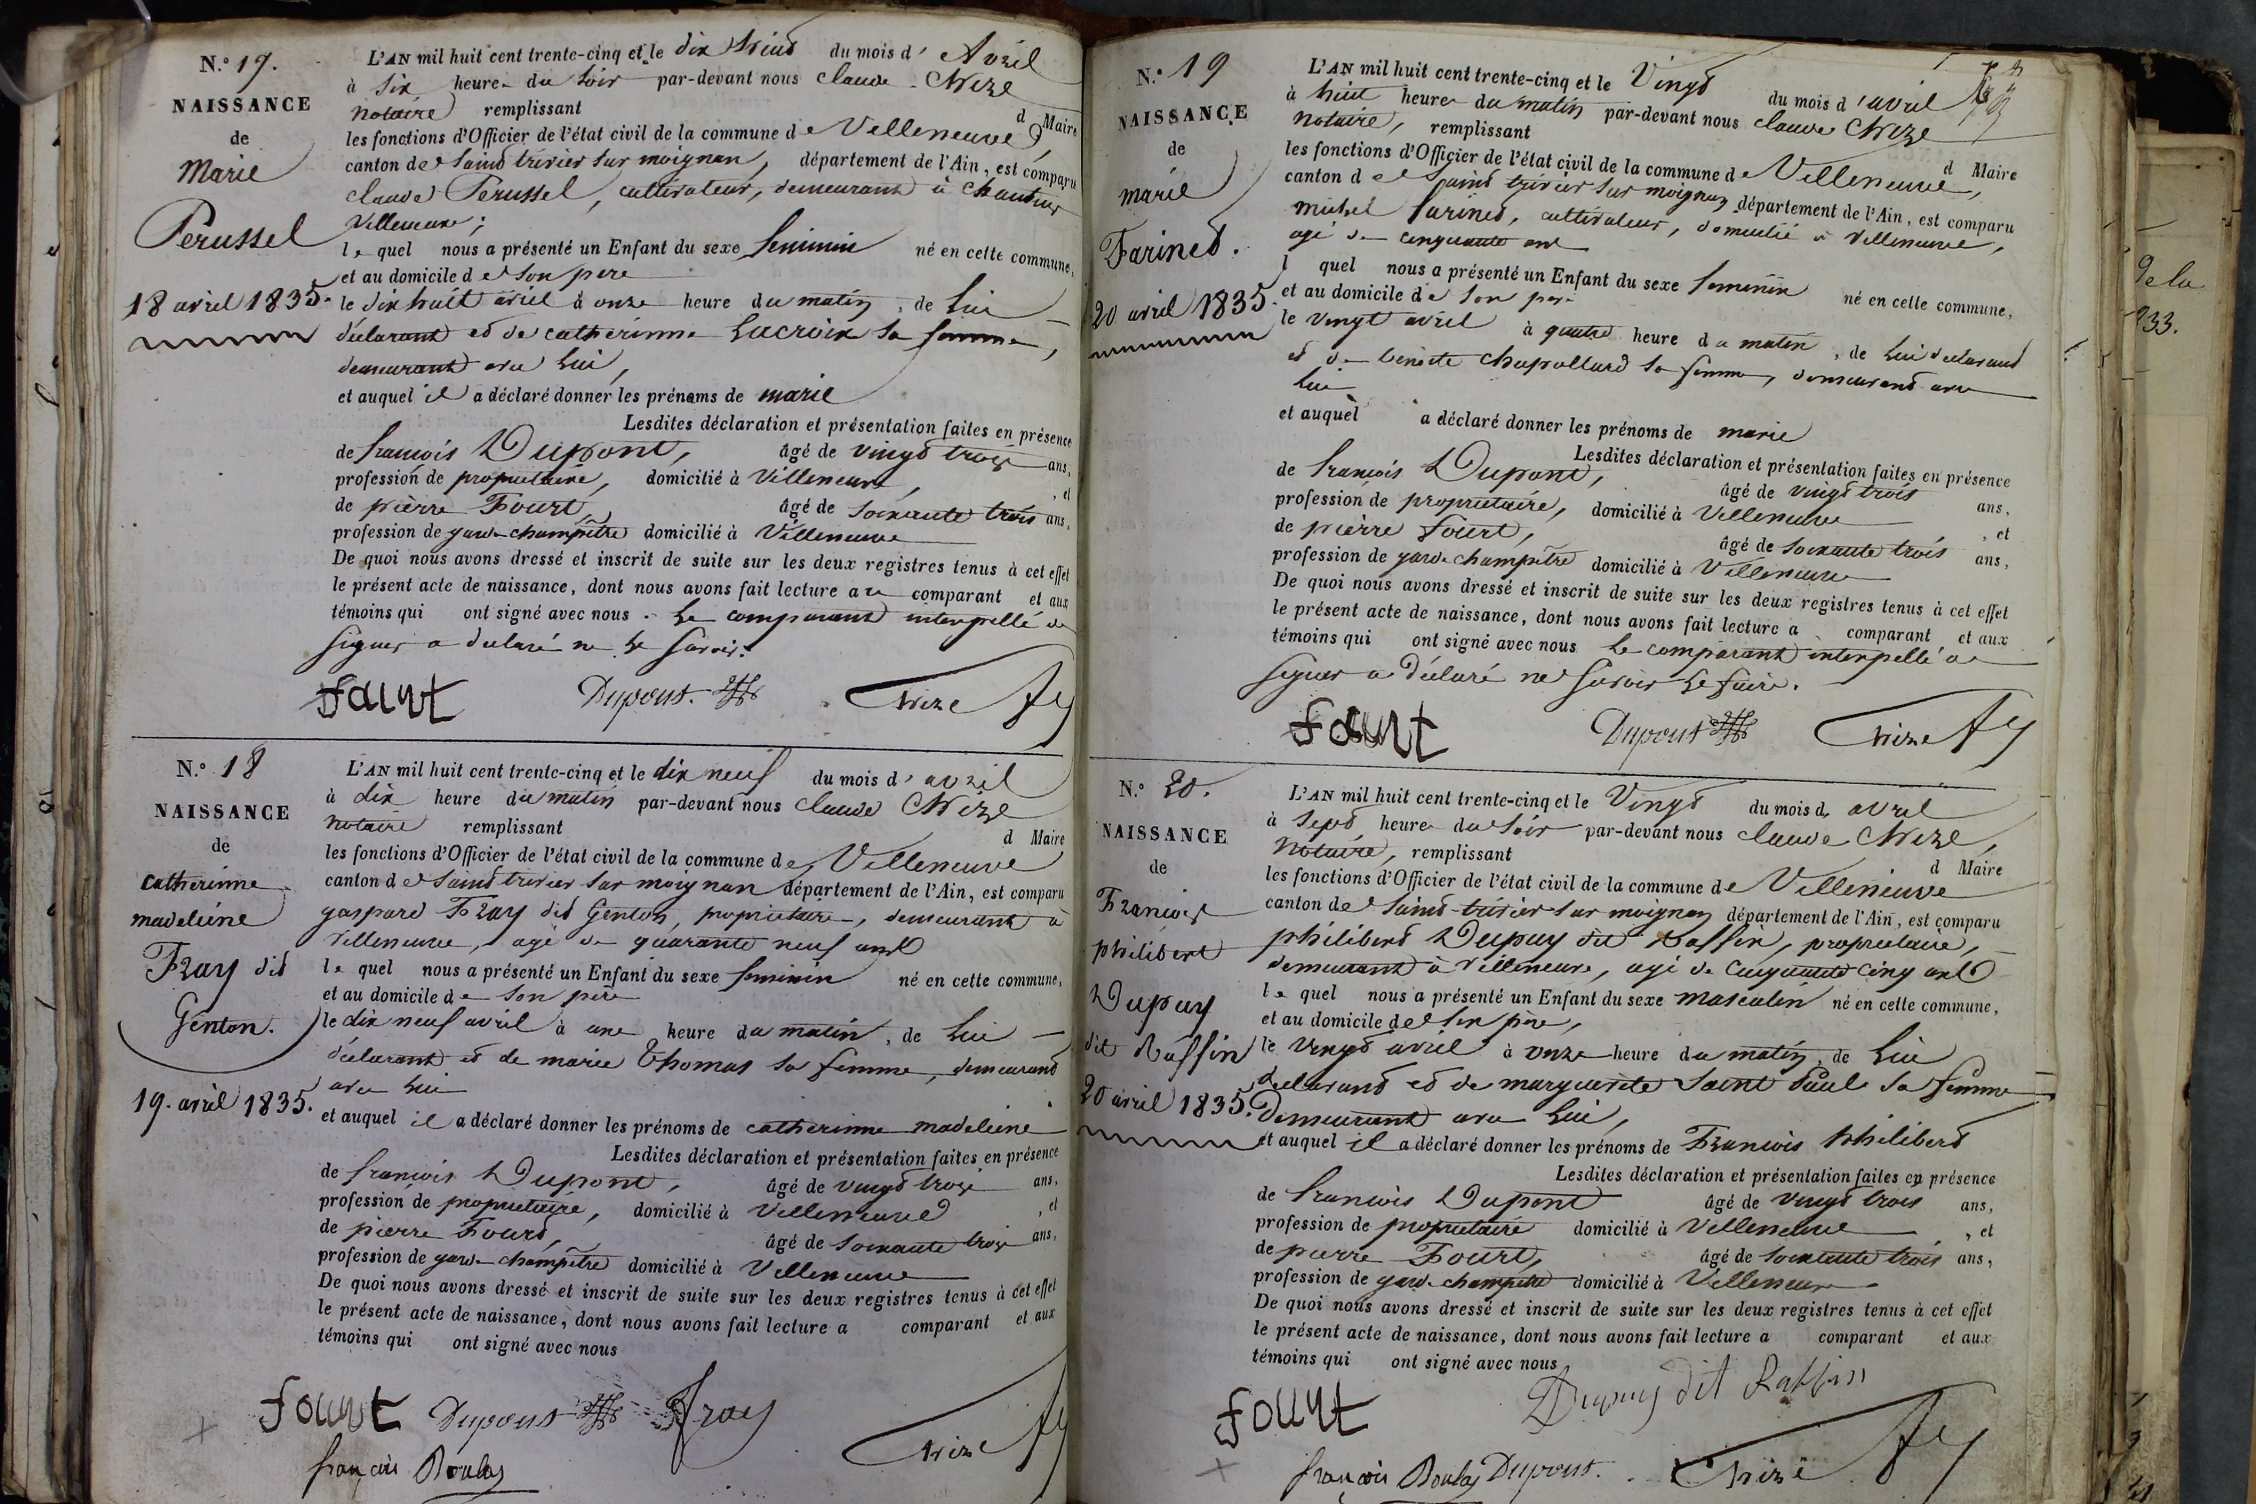 N.º 17.
NAISSANCE
de
Marie
Perussel
18 avril 1835.
L'AN mil huit cent trente-cinq et le dix huit du mois d' Avril
à Six heure du Soir par-devant nous Claude
notaire remplissant d Maire
les fonctions d'Officier de l'état civil de la commune de Villeneuve,
canton de Saint trivier sur moignan, département de l'Ain, est comparu
claude Perussel, cultivateur, demeurant à
Villeneuve;
le quel nous a présenté un Enfant du sexe feminin né en cette commune,
et au domicile de Son pere
le dix huit avril à onze heure du matin, de Lui
déclarant et de catherinne Lacroix sa femme,
demeurant avec Lui,
et auquel il a déclaré donner les prénoms de marie
Lesdites déclaration et présentation faites en présence
de francois Dupont, âgé de vingt trois ans,
profession de propriétaire, domicilié à Villeneuve, et
de pierre Fourt, âgé de Soixante trois ans,
profession de garde champêtre domicilié à Villeneuve
De quoi nous avons dressé et inscrit de suite sur les deux registres tenus à cet effet
le présent acte de naissance, dont nous avons fait lecture au comparant et aux
témoins qui ont signé avec nous. Le comparant interpellé de
signer a déclaré ne Le Savoir.
fourt Dupont.
N.º 18
NAISSANCE
de
catherinne
madeleine
Fray dit
Genton.
19. avril 1835.
L'AN mil huit cent trente-cinq et le dix neuf du mois d' avril
à dix heure du matin par-devant nous Claude
notaire remplissant d Maire
les fonctions d'Officier de l'état civil de la commune de Villeneuve
canton de Saint trivier sur moignan département de l'Ain, est comparu
gaspard Fray dit Genton, propriétaire, demeurant à
Villeneuve, agé de quarante neuf ans
le quel nous a présenté un Enfant du sexe feminin né en cette commune,
et au domicile de Son père
le dix neuf avril à une heure du matin, de Lui
déclarant et de marie Thomas sa femme, demeurant
avec Lui
et auquel il a déclaré donner les prénoms de catherinne madeleine
Lesdites déclaration et présentation faites en présence
de francois Dupont, âgé de vingt trois ans,
profession de propriétaire, domicilié à Villeneuve, et
de pierre Fourt, âgé de Soixante trois ans,
profession de garde champêtre domicilié à Villeneuve
De quoi nous avons dressé et inscrit de suite sur les deux registres tenus à cet effet
le présent acte de naissance, dont nous avons fait lecture a comparant et aux
témoins qui ont signé avec nous
fourt Dupont Fray
françois
N.º 19
NAISSANCE
de
marie
Farinet.
20 avril 1835.
L'AN mil huit cent trente-cinq et le Vingt du mois d'avril
à huit heure du matin par-devant nous claude
notaire, remplissant d Maire
les fonctions d'Officier de l'état civil de la commune de Villeneuve,
canton de Saint trivier sur moignan département de l'Ain, est comparu
michel farinet, cultivateur, domicilié à Villeneuve,
agé de cinquante ans
l quel nous a présenté un Enfant du sexe feminin né en cette commune,
et au domicile de Son pere
le vingt avril à quatre heure du matin, de Lui declarant
et de benoite Chapolard sa femme, demeurant avec
Lui
et auquel a déclaré donner les prénoms de marie
Lesdites déclaration et présentation faites en présence
de francois Dupont, âgé de vingt trois ans,
profession de propriétaire, domicilié à Villeneuve, et
de pierre fourt, âgé de Soixante trois ans,
profession de garde champêtre domicilié à Villeneuve
De quoi nous avons dressé et inscrit de suite sur les deux registres tenus à cet effet
le présent acte de naissance, dont nous avons fait lecture a comparant et aux
témoins qui ont signé avec nous Le comparant interpellé de
signer a déclaré ne Savoir Le faire.
fourt Dupont
N.º 20.
NAISSANCE
de
Francois
philibert
Dupuy
dit Raffin
20 avril 1835.
L'AN mil huit cent trente-cinq et le Vingt du mois d, avril
à Sept heure du Soir par-devant nous claude
notaire, remplissant d Maire
les fonctions d'Officier de l'état civil de la commune de Villeneuve
canton de Saint-trivier sur moignan département de l'Ain, est comparu
philibert Dupuy dit Raffin, propriétaire,
demeurant à Villeneuve, agé de cinquante cinq ans
le quel nous a présenté un Enfant du sexe masculin né en cette commune,
et au domicile de Son père,
le Vingt avril à onze heure du matin, de Lui
declarant et de marguerite Saint Paul sa femme
demeurant avec Lui,
et auquel il a déclaré donner les prénoms de Francois Philibert
Lesdites déclaration et présentation faites en présence
de francois Dupont âgé de vingt trois ans,
profession de propriétaire domicilié à Villeneuve, et
de pierre Fourt, âgé de Soixante trois ans,
profession de garde champetre domicilié à Villeneuve
De quoi nous avons dressé et inscrit de suite sur les deux registres tenus à cet effet
le présent acte de naissance, dont nous avons fait lecture a comparant et aux
témoins qui ont signé avec nous
Dupuy dit Raffin
fourt
françois Dupont.
de la